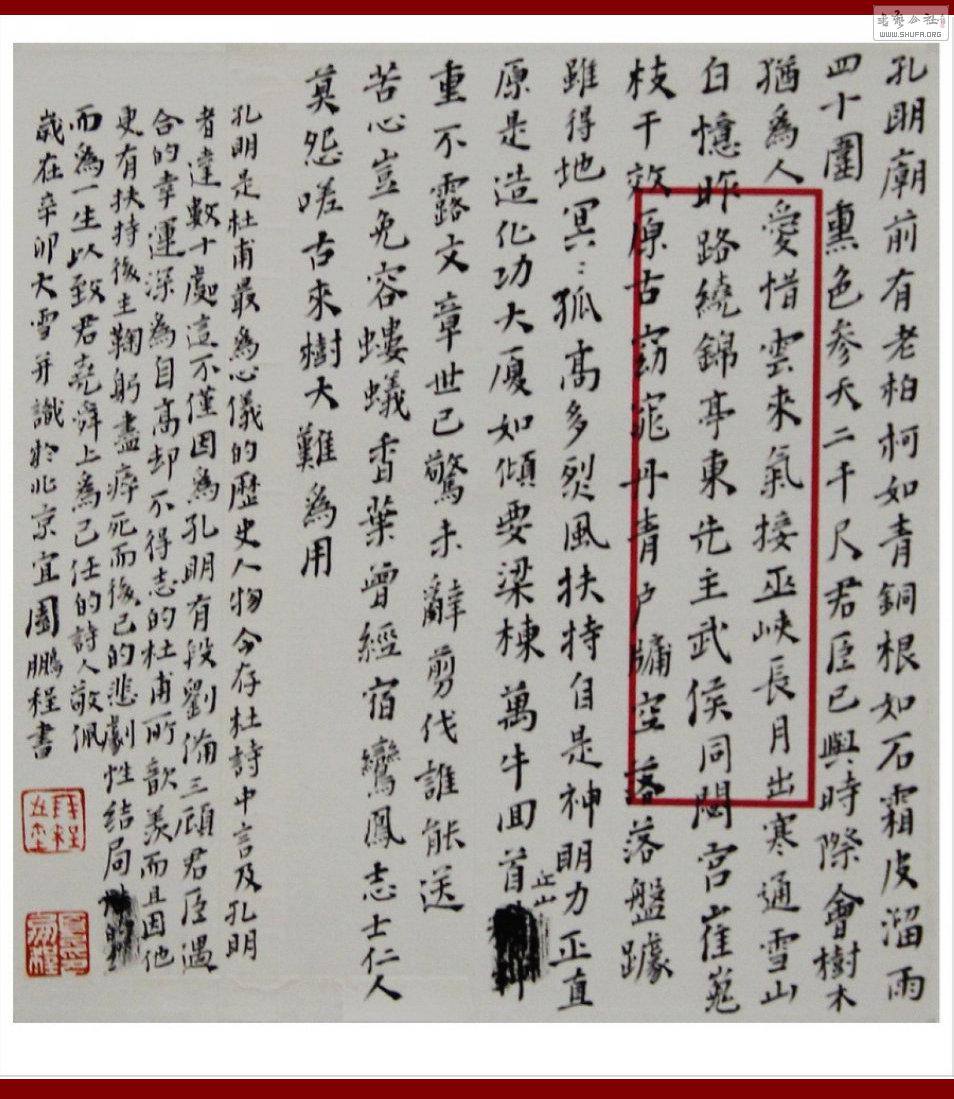 孔明廟前有老柏柯如青銅根如石霜皮溜雨
四十圍熏色參天二千尺君臣已與時際會樹木
猶為人愛惜雲來氣接巫峽長月出寒通雪山
白憶昨路繞錦亭東先主武侯同閟宮崔嵬
枝干效原古窈窕丹青戶牖空落落盤躆
雖得地冥〻孤高多烈風扶持自是神明力正直
原是造化功大廈如傾要梁棟萬牛回首丘山
重不露文章世已驚未辭剪伐誰能送
苦心豈免容螻蟻香葉曾經宿鸞鳳志士仁人
莫怨嗟古來樹大難為用
孔明是杜甫最為心儀的歷史人物今存杜詩中言及孔明
者達數十處這不僅因為孔明有段劉備三顧君臣遇
合的幸運深為自高却不得志的杜甫所歆羨而且因他
更有扶持後主鞠躬盡瘁死而後已的悲劇性結局
而為一生以致君堯舜上為己任的詩人敬佩
歲在辛卯大雪并識於北京宜園鵬程書
書藝公社
WWW.SHUFA.ORG